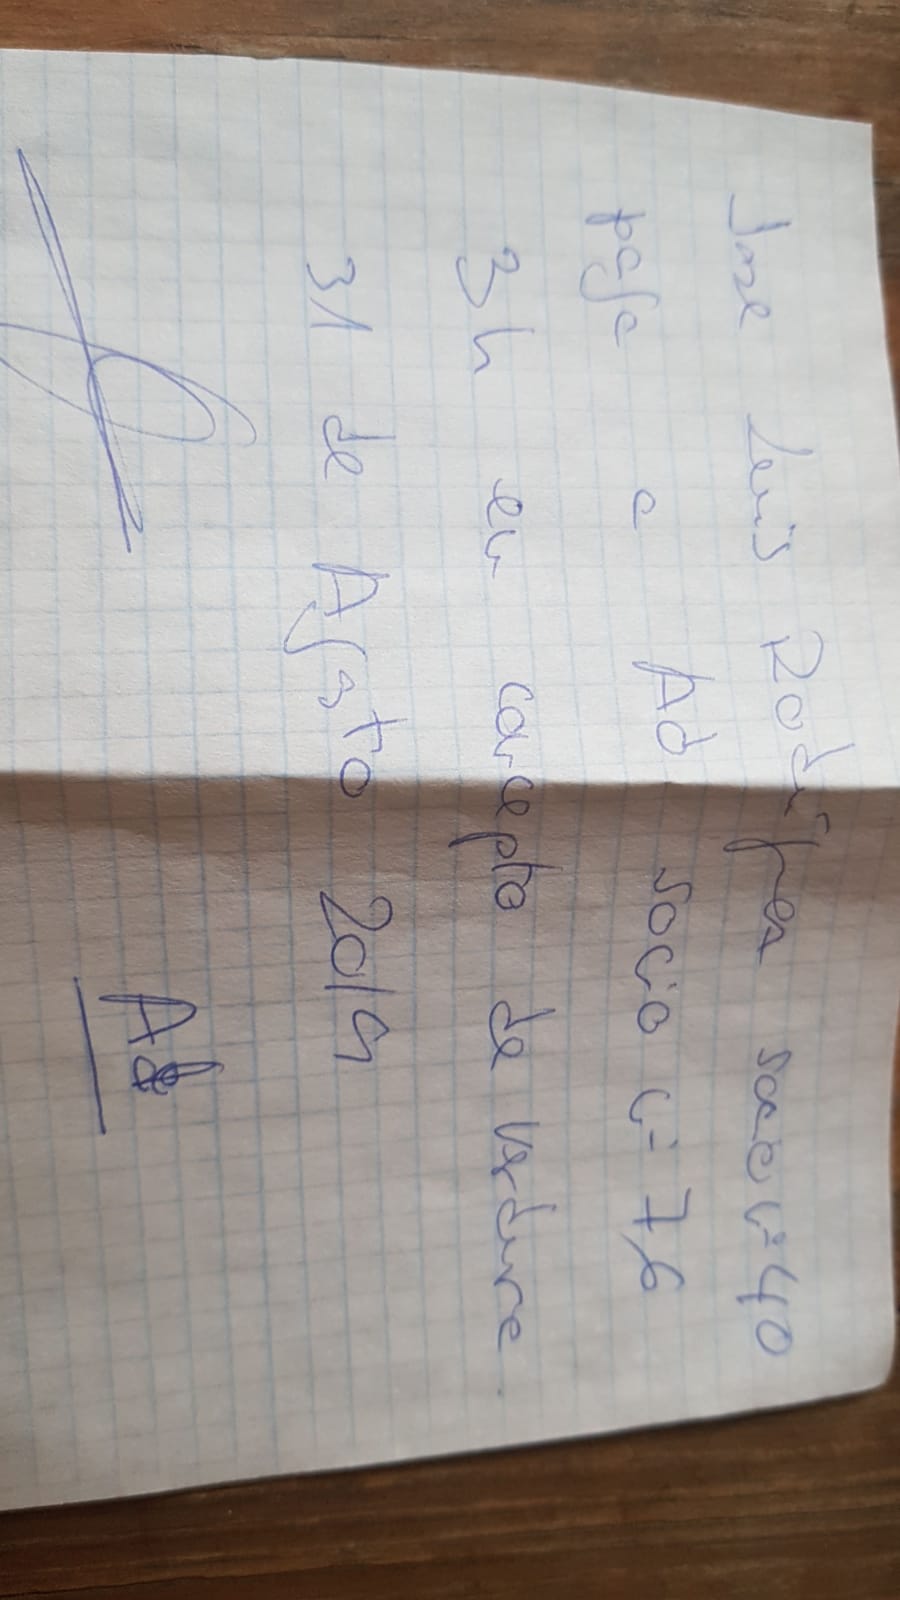 Jose Luis Rodriguez socio nº 40
paga a Ad socio nº 76
3h en concepto de verdura.
31 de Agosto 2014
Ad